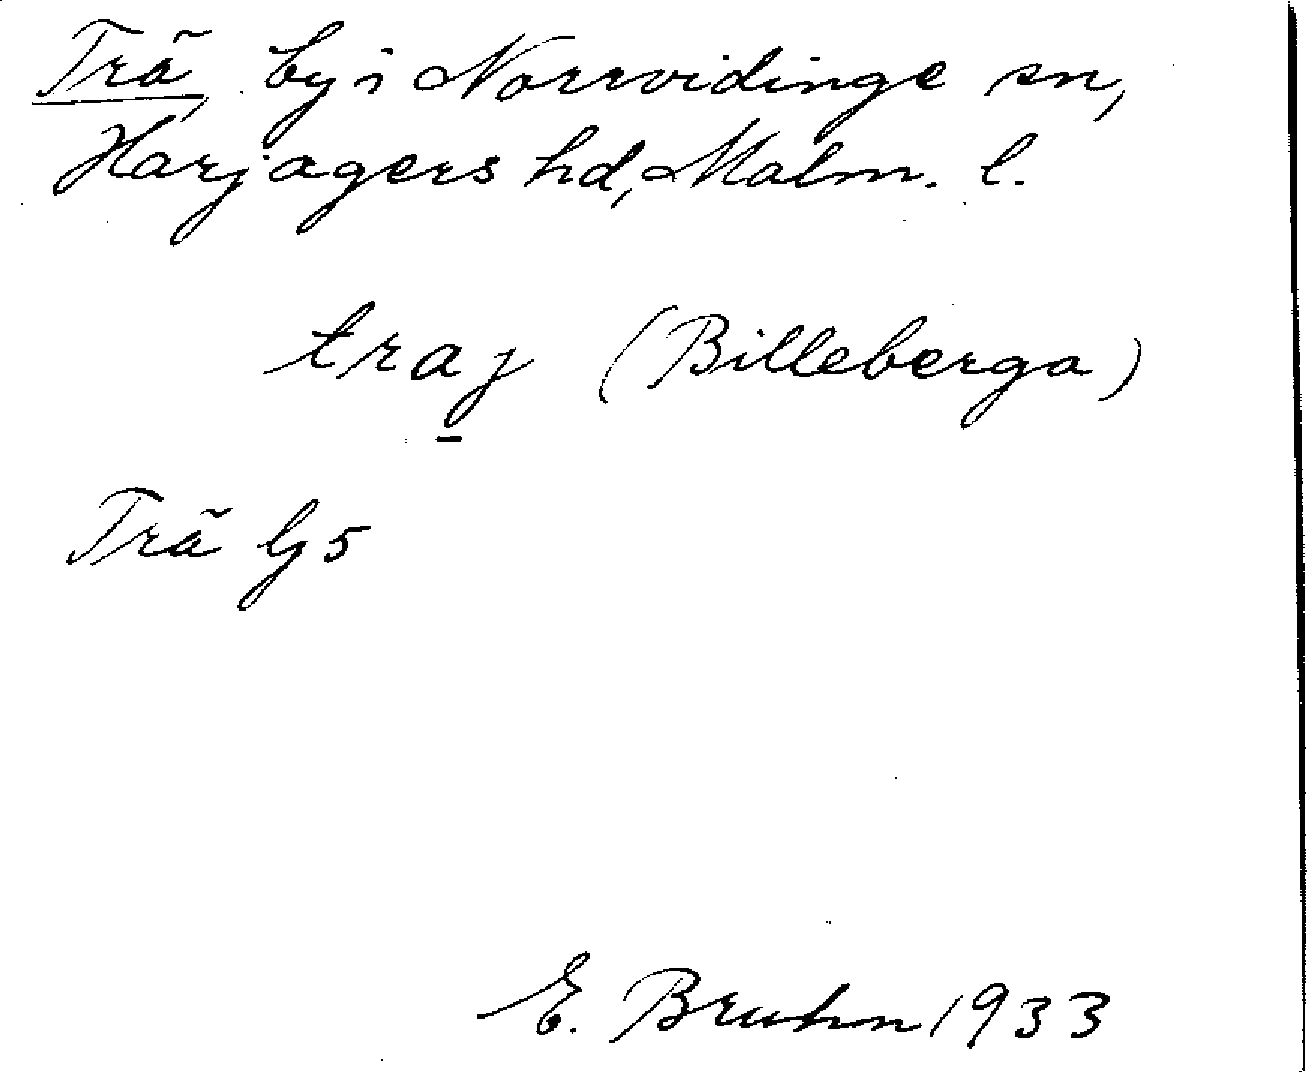 Trä, by i Norrvidinge sn,
Harjagers hd, Malm. l.
traj (Billeberga)
Trä G5
E. Bruhn 1933